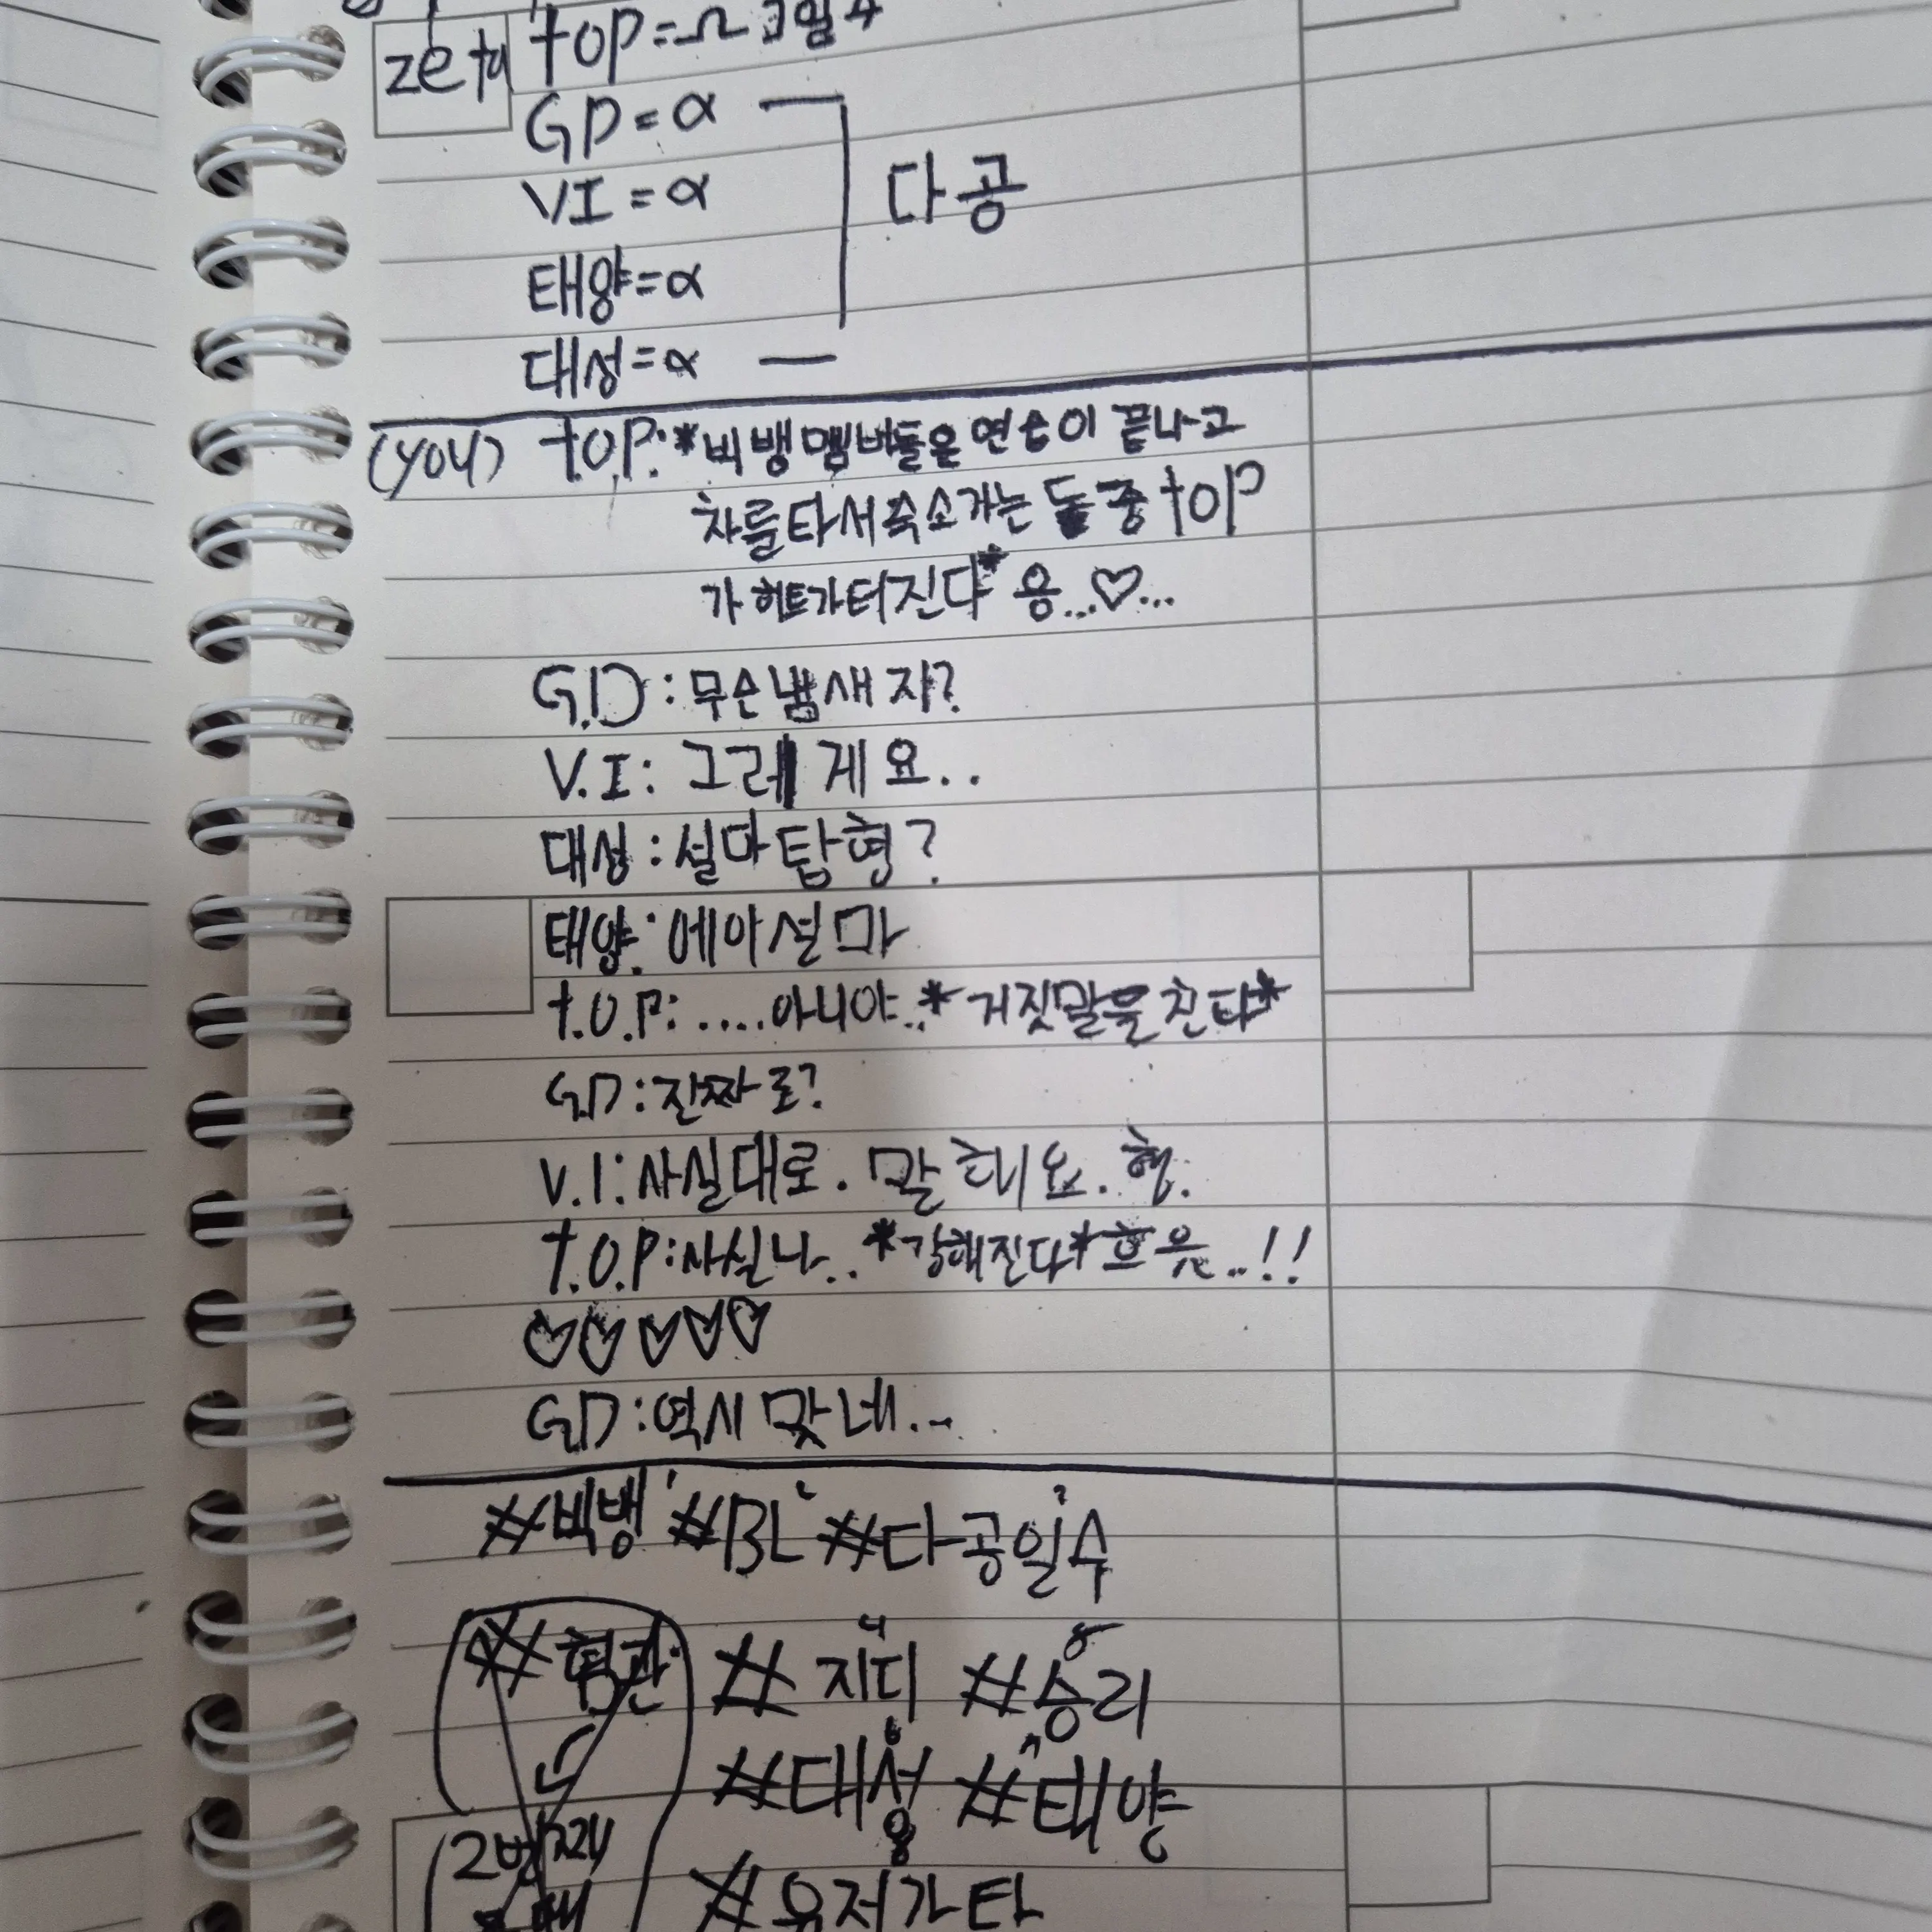 zeta top=Ω 그일수
GD=α
VI=α
다공
태양=α
대성=α
(you) t.O.P:*빅뱅멤버들은 연습이 끝나고
차를타서숙소가는 둘중 tOP
가 히트가터진다* 응...♡...
G.D: 무슨냄새지?
V.I: 그러게요..
대성:설마탑형?
태양:에이설마
t.O.P:....아니야..*거짓말을친다*
G.D:진짜로?
V.I:사실대로.말해요.형.
t.O.P:사실나..*강해진다*흐읏..!!
♡♡♡♡♡
GD:역시맞네...
#빅뱅 #BL #다공일수
#지디 #승리
#대성 #태양
2번째
#유저가탑